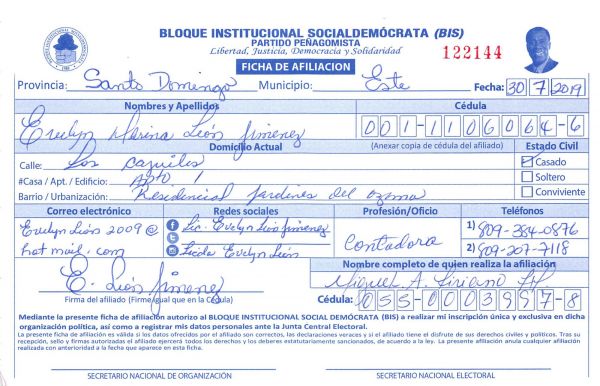 BLOQUE INSTITUCIONAL SOCIALDEMÓCRATA (BIS)
PARTIDO PEÑAGOMISTA
Libertad, Justicia, Democracia y Solidaridad
122144
FICHA DE AFILIACION
Provincia: Santo Domingo Municipio: Este Fecha: 30/7/2019
Nombres y Apellidos Cédula
Evelyn Marina León Jimenez 001-1106064-6
Domicilio Actual (Anexar copia de cédula del afiliado) Estado Civil
Calle: Los Casado
#Casa / Apt. / Edificio: Apto 1 Soltero
Barrio / Urbanización: Residencial Jardines del Ozama Conviviente
Correo electrónico Redes sociales Profesión/Oficio Teléfonos
Evelyn León 2009@ Lic. Evelyn León Jimenez 1) 809-384-0876
hotmail.com Licda Evelyn León Contadora 2) 809-207-7118
Nombre completo de quien realiza la afiliación
E. León Jimenez Miguel A.
Firma del afiliado (Firme igual que en la Cédula) Cédula: 055-0003997-8
Mediante la presente ficha de afiliación autorizo al BLOQUE INSTITUCIONAL SOCIAL DEMÓCRATA (BIS) a realizar mi inscripción única y exclusiva en dicha
organización política, así como a registrar mis datos personales ante la Junta Central Electoral.
La presente ficha de afiliación es válida si los datos ofrecidos por el afiliado son correctos, las declaraciones veraces y si el afiliado tiene el disfrute de sus derechos civiles y políticos. Tras su
recepción, sello y firmas autorizadas el afiliado ejercerá todos los derechos y los deberes estatutariamente sancionados, de acuerdo a la ley. La presente afiliación anula cualquier afiliación
realizada con anterioridad a la fecha que aparece en esta ficha.
SECRETARIO NACIONAL DE ORGANIZACIÓN SECRETARIO NACIONAL ELECTORAL